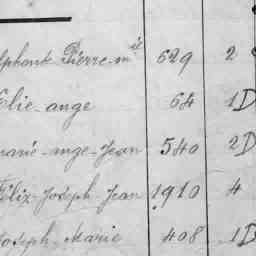 lphonse Pierre-m ie 629 2
Elie-ange 64 1D
marie-ange-Jean 540 2D
Félix-Joseph Jean 1910 4
Joseph Marie 408 1D